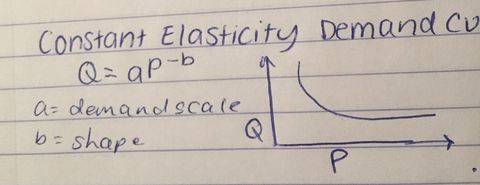 Constant Elasticity Demand Cu
Q = aP^-b
a = demand scale
b = shape
Q
P